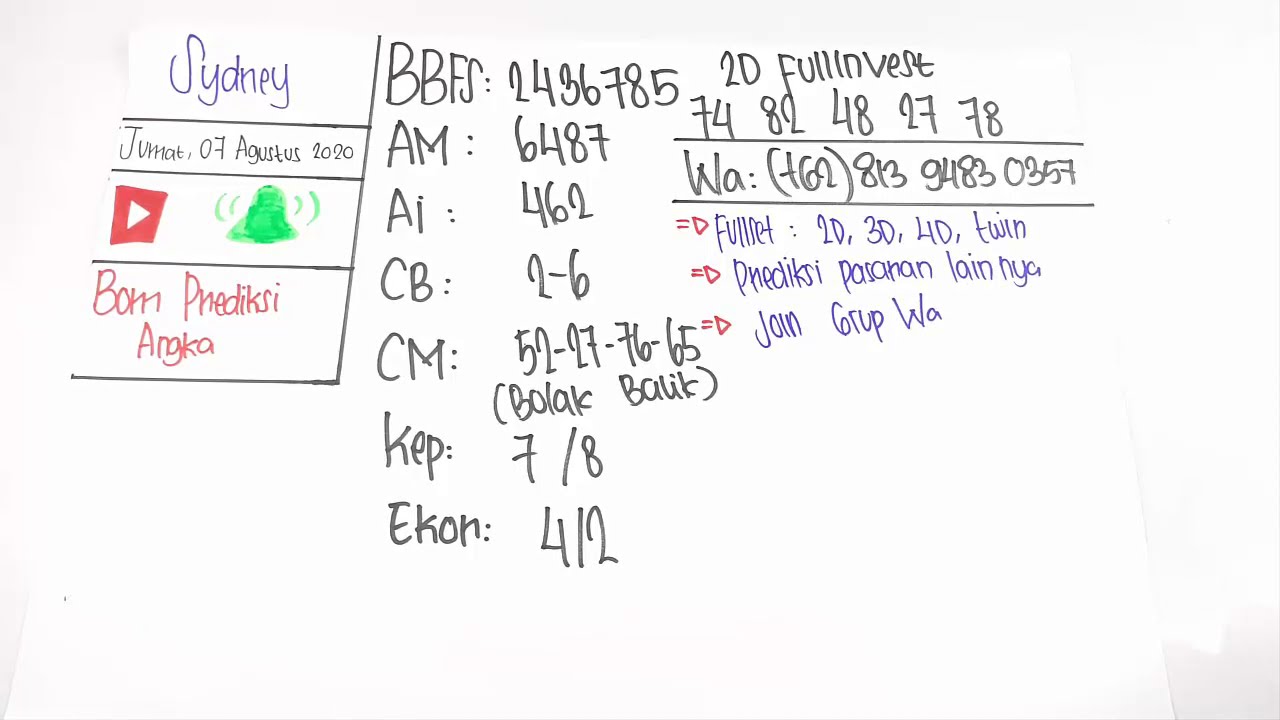 Sydney
Jumat, 07 Agustus 2020
Bom Prediksi
Angka
BBFS: 2436785
AM: 6487
Ai: 462
CB: 2-6
CM: 52-27-76-65
(Bolak Balik)
Kep: 7/8
Ekor: 4/2
2D FullInvest
74 82 48 27 78
Wa: (+62) 813 9483 0357
=> Fullset: 2D, 3D, 4D, twin
=> Prediksi pasaran lainnya
=> Join Grup Wa